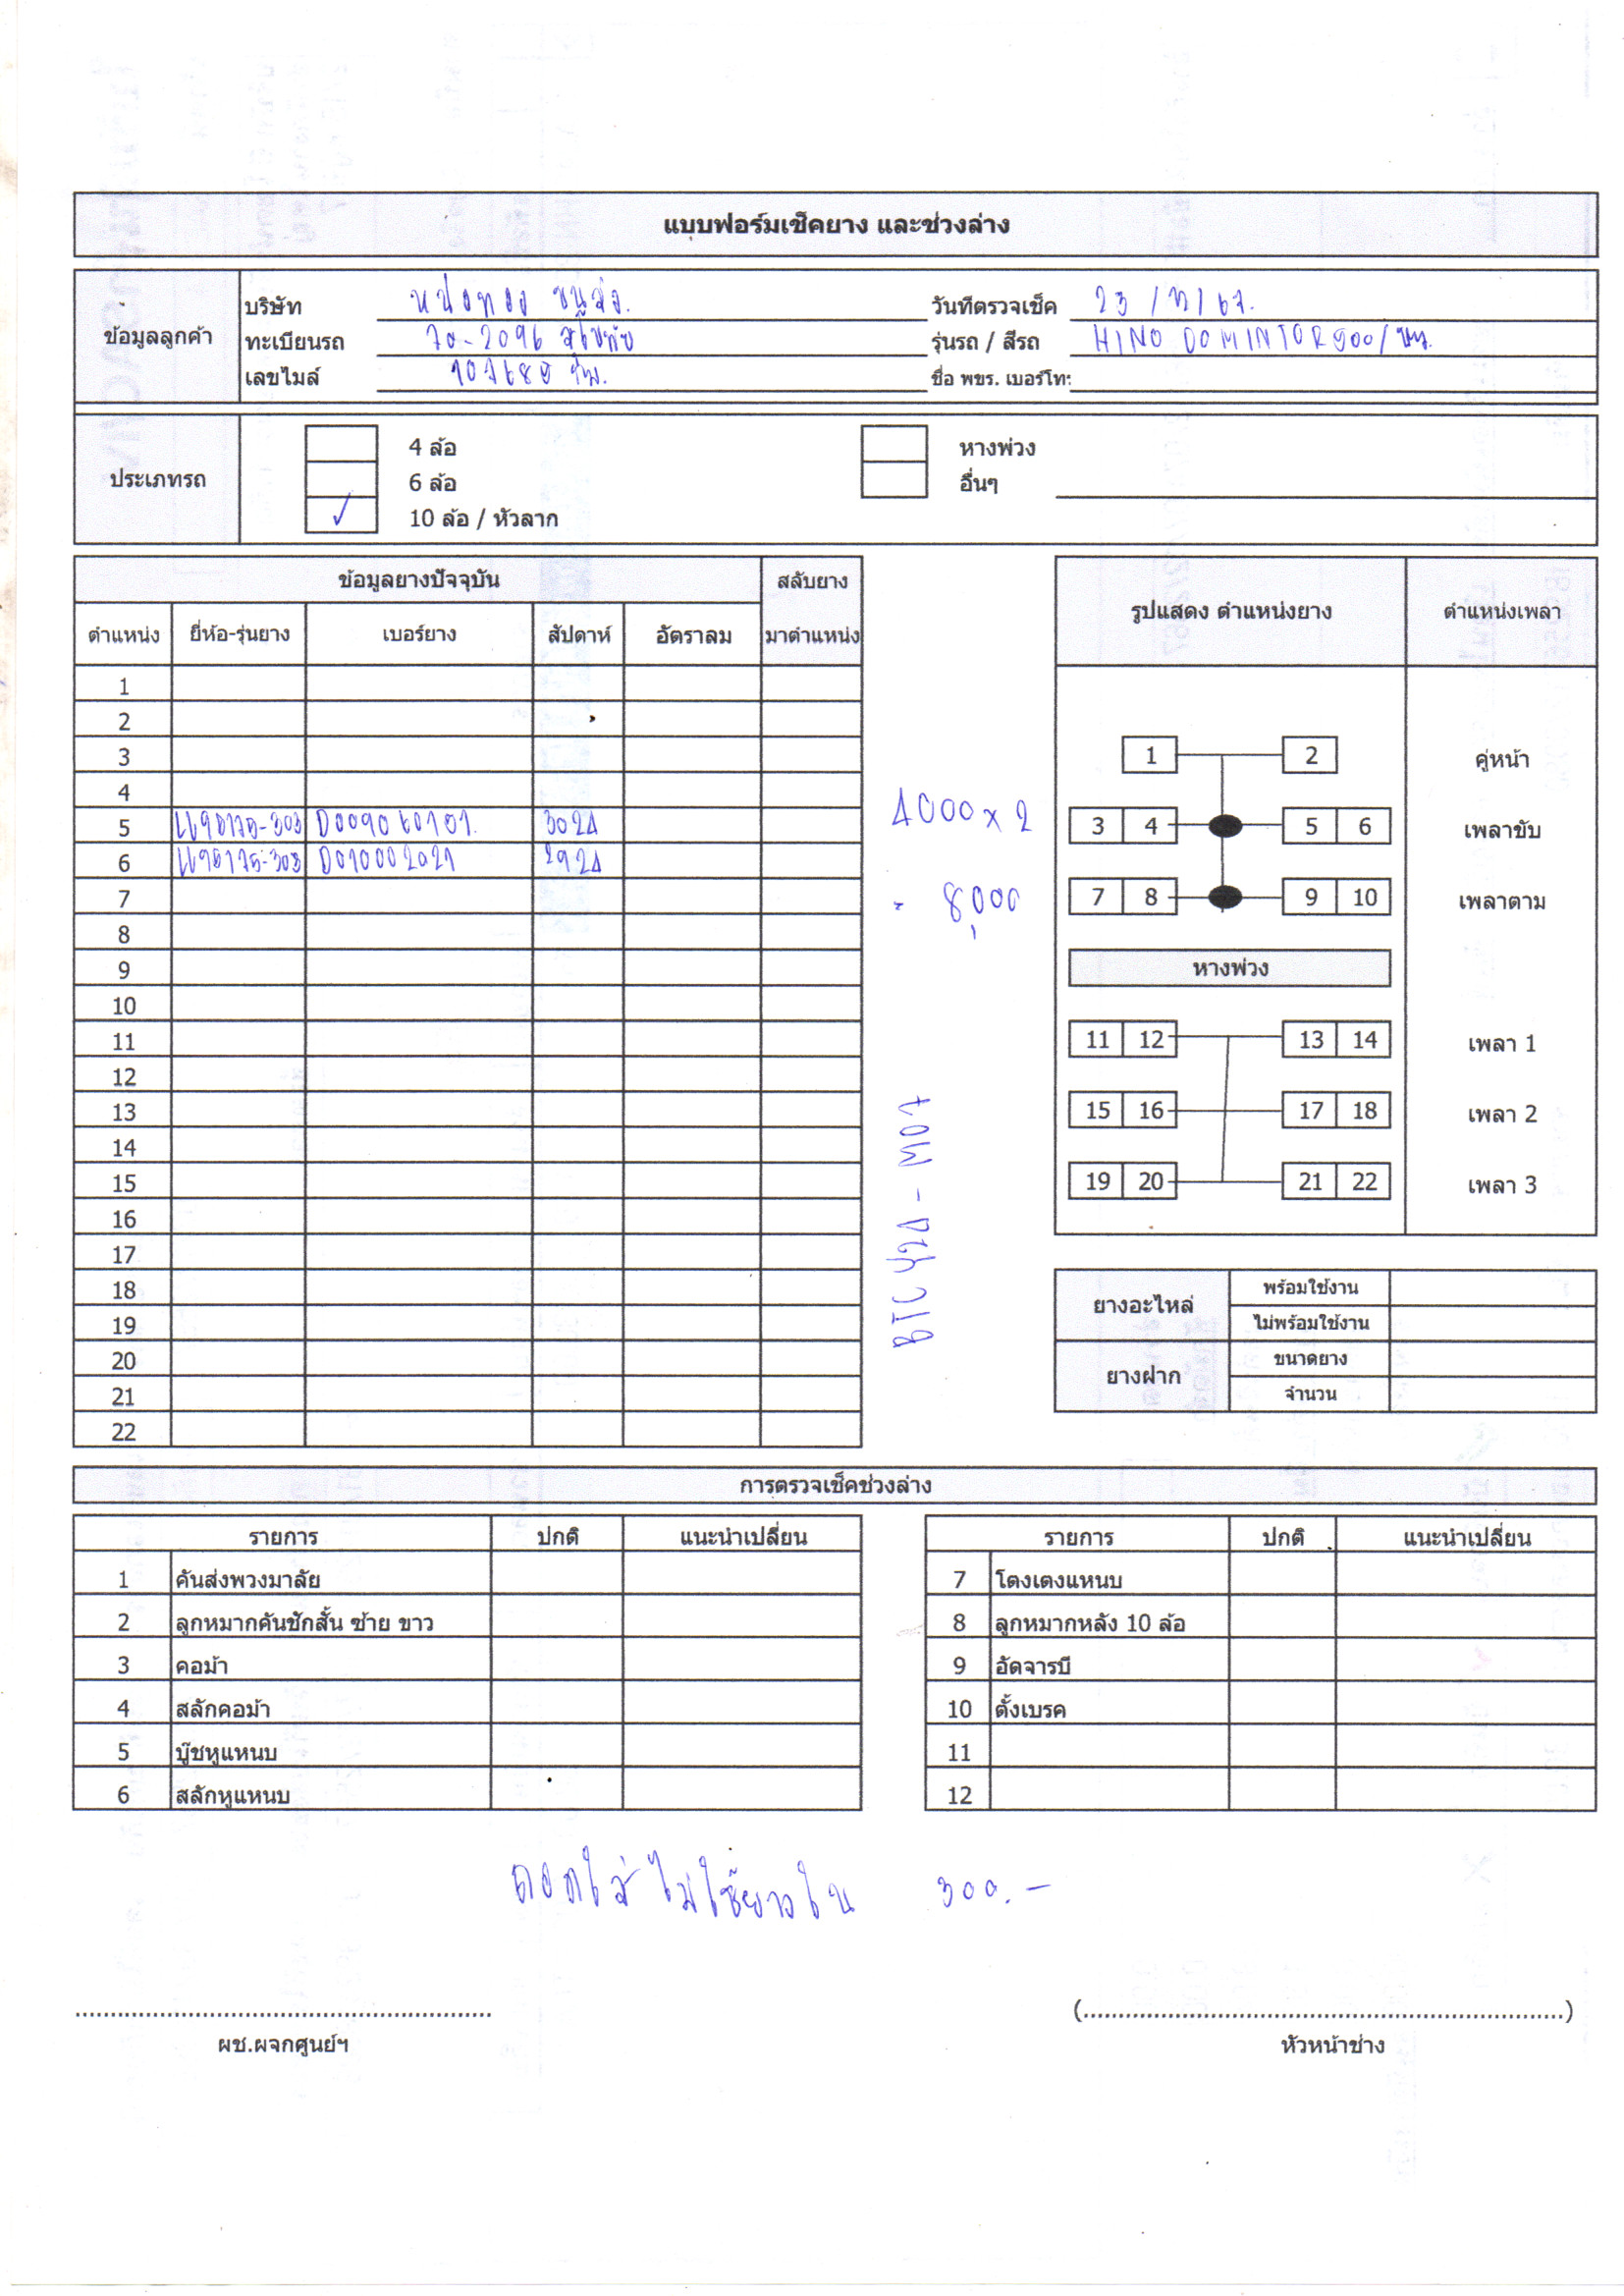 แบบฟอร์มเช็คยาง และช่วงล่าง
ข้อมูลลูกค้า
บริษัท หน่อทอง ขนส่ง. วันที่ตรวจเช็ค
ทะเบียนรถ 70-2096 สุโขทัย รุ่นรถ / สีรถ HINO DOMINTOR500/
เลขไมล์ กม. ชื่อ พขร. เบอร์โทร
ประเภทรถ
4 ล้อ หางพ่วง
6 ล้อ อื่นๆ
✓ 10 ล้อ / หัวลาก
ข้อมูลยางปัจจุบัน สลับยาง
ตำแหน่ง ยี่ห้อ-รุ่นยาง เบอร์ยาง สัปดาห์ อัตราลม มาตำแหน่ง
1
2
3
4
5 3024
6 D010002021 2924
7
8
9
10
11
12
13
14
15
16
17
18
19
20
21
22
4000 x 2
= 8,000
BTC - M07
รูปแสดง ตำแหน่งยาง ตำแหน่งเพลา
1 2 คู่หน้า
3 4 5 6 เพลาขับ
7 8 9 10 เพลาตาม
หางพ่วง
11 12 13 14 เพลา 1
15 16 17 18 เพลา 2
19 20 21 22 เพลา 3
ยางอะไหล่ พร้อมใช้งาน
ไม่พร้อมใช้งาน
ยางฝาก ขนาดยาง
จำนวน
การตรวจเช็คช่วงล่าง
รายการ ปกติ แนะนำเปลี่ยน
1 คันส่งพวงมาลัย
2 ลูกหมากคันชักสั้น ซ้าย ขาว
3 คอม้า
4 สลักคอม้า
5 บู๊ชหูแหนบ
6 สลักหูแหนบ
รายการ ปกติ แนะนำเปลี่ยน
7 โตงเตงแหนบ
8 ลูกหมากหลัง 10 ล้อ
9 อัดจารบี
10 ตั้งเบรค
11
12
ถอดใส่ ไม่ใช้ยางใน 300.-
(....................)
ผช.ผจกศูนย์ฯ หัวหน้าช่าง